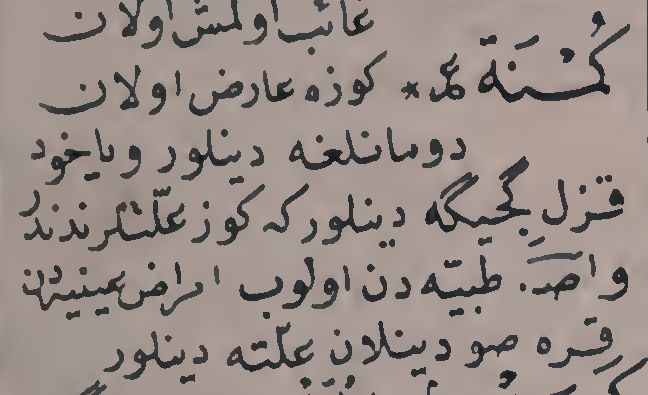 غائب اولمش اولان
كُمْنَة ع * كوزه عارض اولان
دومانلغه دينلور وياخود
قزل كجيكه دينلور كه كوز علّتلرندندر
واصحـ. طبيّه دن اولوب امراض عينيه دن
قره صو دينلان علّته دينلور